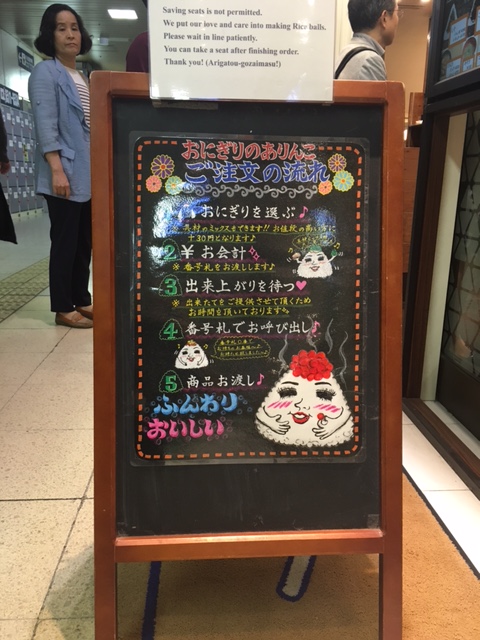 Saving seats is not permitted.
We put our love and care into making Rice balls.
Please wait in line patiently.
You can take a seat after finishing order.
Thank you! (Arigatou-gozaimasu!)
おにぎりのありんこ
ご注文の流れ
おにぎりを選ぶ♪
具材のミックスもできます!! お値段の高い方に
+30円となります♪
2 ¥ お会計
※ 番号札をお渡しします♪
3 出来上がりを待つ♥
※ 出来たてをご提供させて頂くため
お時間を頂いております。
4 番号札でお呼び出し♪
5 商品お渡し♪
ふんわり
おいしい